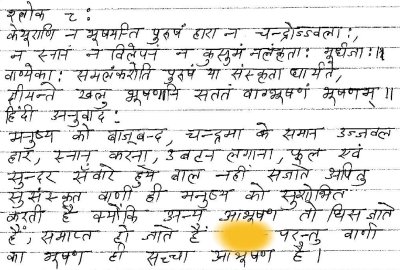 श्लोक ८ :
केयूराणि न भूषयन्ति पुरुषं हारा न चन्द्रोज्ज्वला:,
न स्नानं न विलेपनं न कुसुमं नालंकृता: मूर्धजा: ।
वाण्येका: समलंकरोति पुरुषं या संस्कृता धार्यते,
क्षीयन्ते खलु भूषणानि सततं वाग्भूषणं भूषणम् ॥
हिंदी अनुवाद :
मनुष्य को बाजूबन्द, चन्द्रमा के समान उज्जवल
हार, स्नान करना, उबटन लगाना, फूल एवं
सुन्दर सँवारे हुये बाल नहीं सजाते अपितु
सुसंस्कृत वाणी ही मनुष्य को सुशोभित
करती है क्योंकि अन्य आभूषण तो घिस जाते
हैं, समाप्त हो जाते हैं परन्तु वाणी
का भूषण ही सच्चा आभूषण है ।